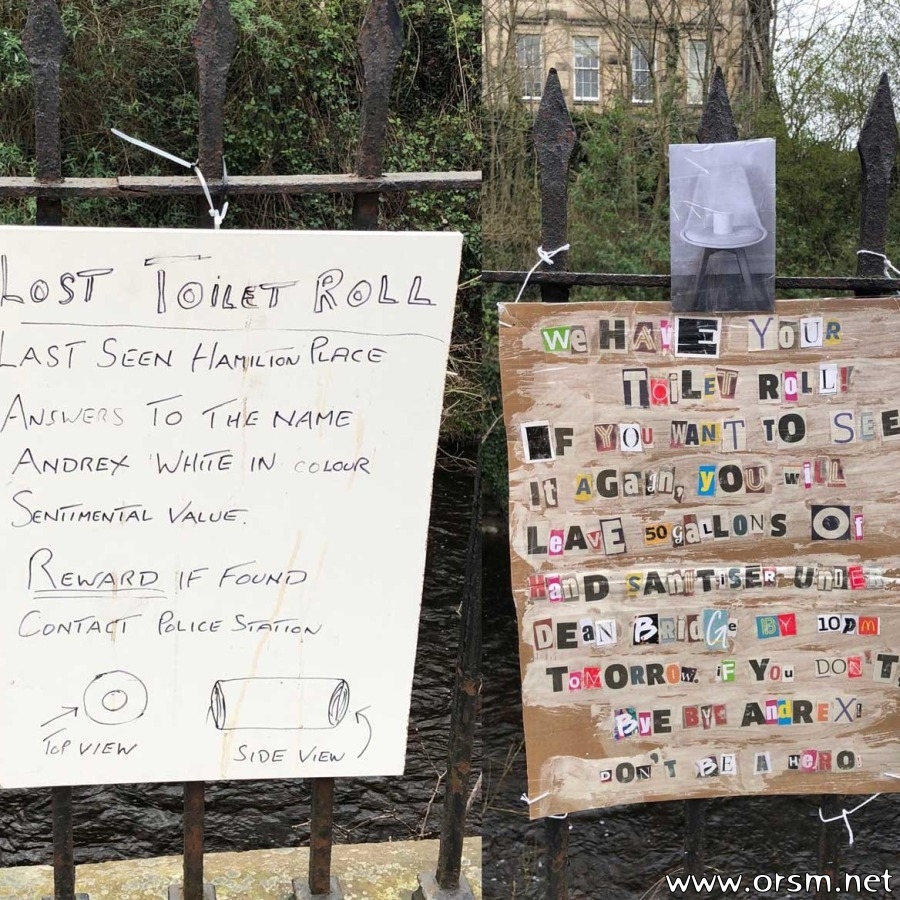 LOST TOILET ROLL
LAST SEEN HAMILTON PLACE
ANSWERS TO THE NAME
ANDREX WHITE IN COLOUR
SENTIMENTAL VALUE.
REWARD IF FOUND
CONTACT POLICE STATION
TOP VIEW
SIDE VIEW
We HAVE YOUR
TOILET ROLL!
IF YOU WANT TO SEE
It AGain, YOU wiLL
LeavE 50 gallONS Of
Hand SANITISER UNDER
DEAN BRidGe BY 10pm
TOMORROW. iF YOu DON'T,
BYE BYE ANDREX!
DON'T BE A HERO!
www.orsm.net